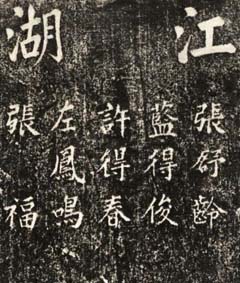 江湖
張舒齡
藍得俊
許得春
左鳳鳴
張福